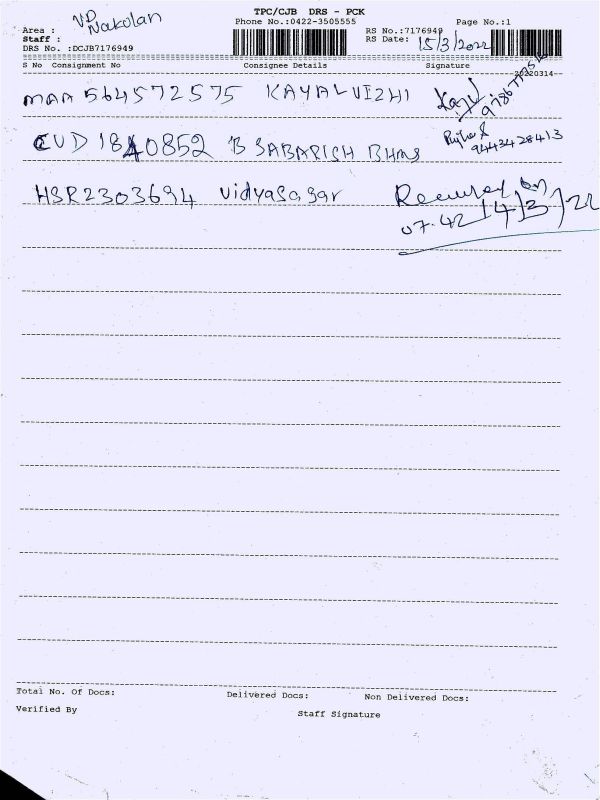 TPC/CJB DRS - PCK
VD Nakulan
Phone No.:0422-3505555
Page No.:1
Area :
Staff :
DRS No. :DCJB7176949
RS No.:7176949
RS Date: 15/3/2022
S No Consignment No Consignee Details Signature
20220314--
MAA 564572575 KAYALVIZHI
CUD 1840852 B SABARISH BHMS
9443428413
HSR2303694 Vidyasagar
07.42 14/3/22
Total No. Of Docs: Delivered Docs: Non Delivered Docs:
Verified By Staff Signature